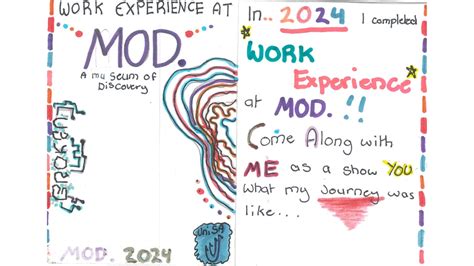 WORK EXPERIENCE AT
MOD.
A museum of
Discovery
UniSA
MOD. 2024
In.. 2024 I completed
WORK
Experience
at MOD. !!
Come Along with
ME as a show YOU
what my Journey was
like...